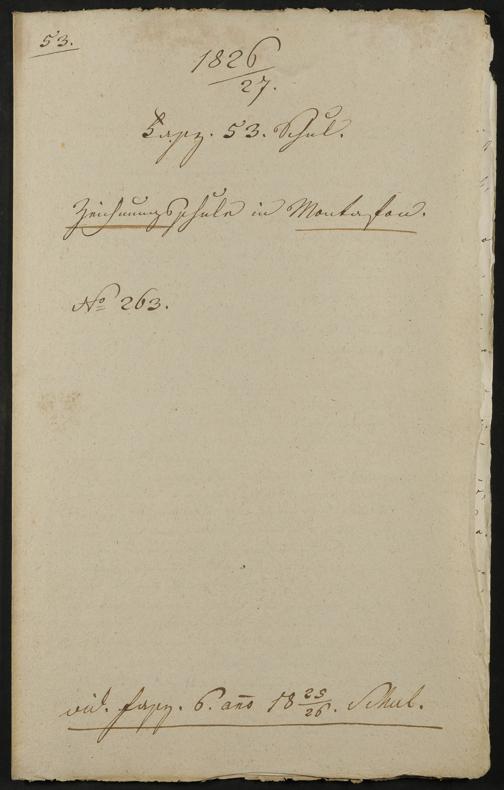 53.
1826
27.
Fasz. 53. Schul.
Zeichnungsschule in Montafon.
No 263.
vid. fasz. 6. ano 18 25/26. Schul.